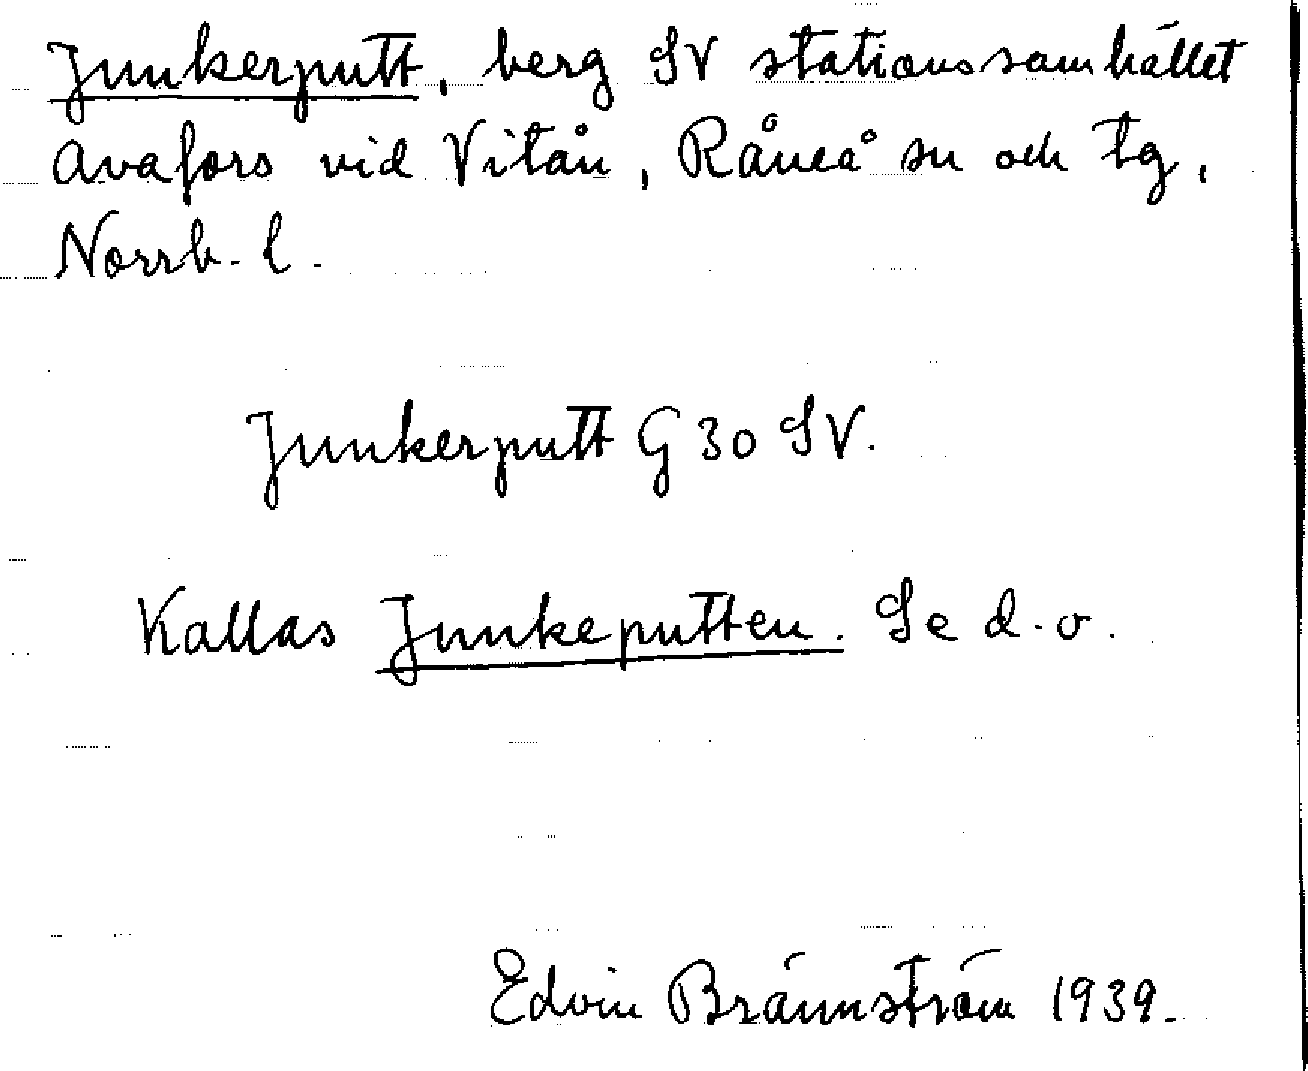 Junkerputt, berg SV stationssamhället
Avafors vid Vitån, Råneå sn och tg,
Norrb. l.
Junkerputt G 30 SV.
Kallas Junkeputten. Se d. o.
Edvin Brännström 1939.